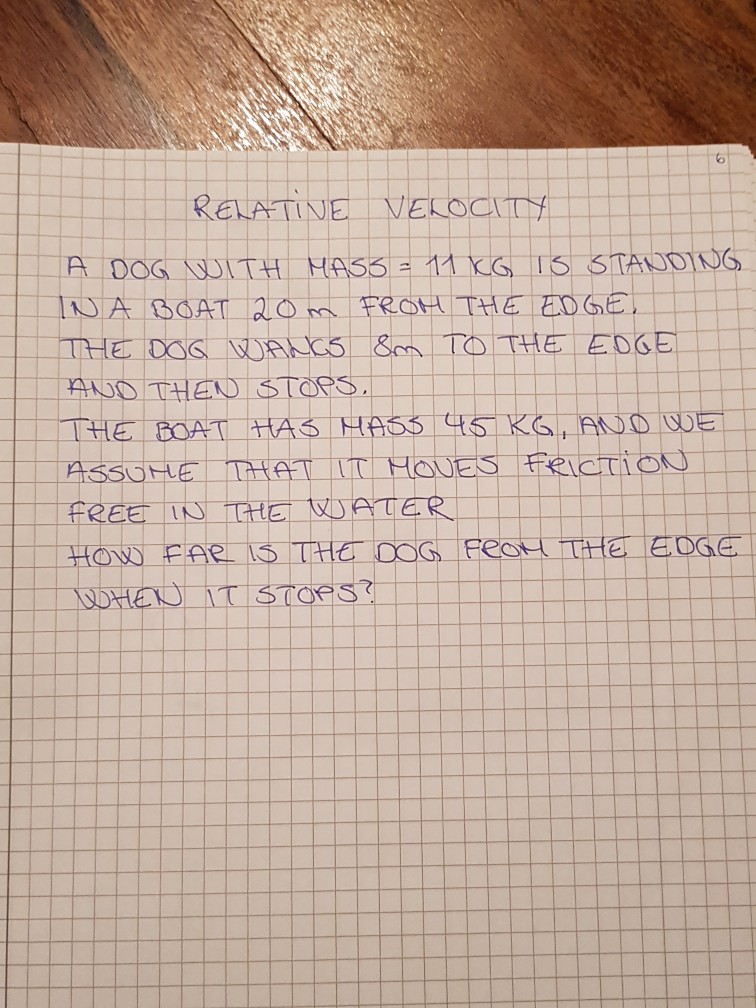 6
RELATIVE VELOCITY
A DOG WITH MASS = 11 KG IS STANDING
IN A BOAT 20 m FROM THE EDGE.
THE DOG WALKS 8m TO THE EDGE
AND THEN STOPS.
THE BOAT HAS MASS 45 KG, AND WE
ASSUME THAT IT MOVES FRICTION
FREE IN THE WATER
HOW FAR IS THE DOG FROM THE EDGE
WHEN IT STOPS?